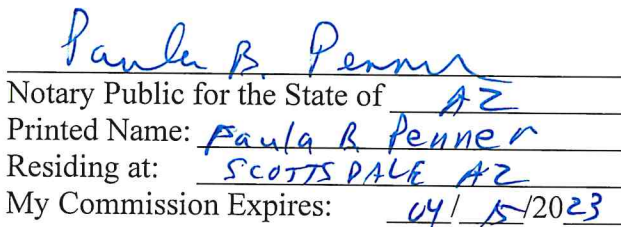 Paula B. Penner
Notary Public for the State of AZ
Printed Name: Paula B Penner
Residing at: SCOTTSDALE AZ
My Commission Expires: 04/ 15/2023